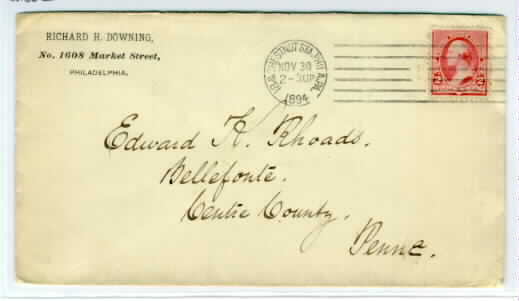 RICHARD H. DOWNING,
No. 1608 Market Street,
PHILADELPHIA,
CHESTNUT STS. PHILA, PA.
NOV 30
2-
1894
Edward H. Rhoads.
Bellefonte.
Centre County.
Penna.